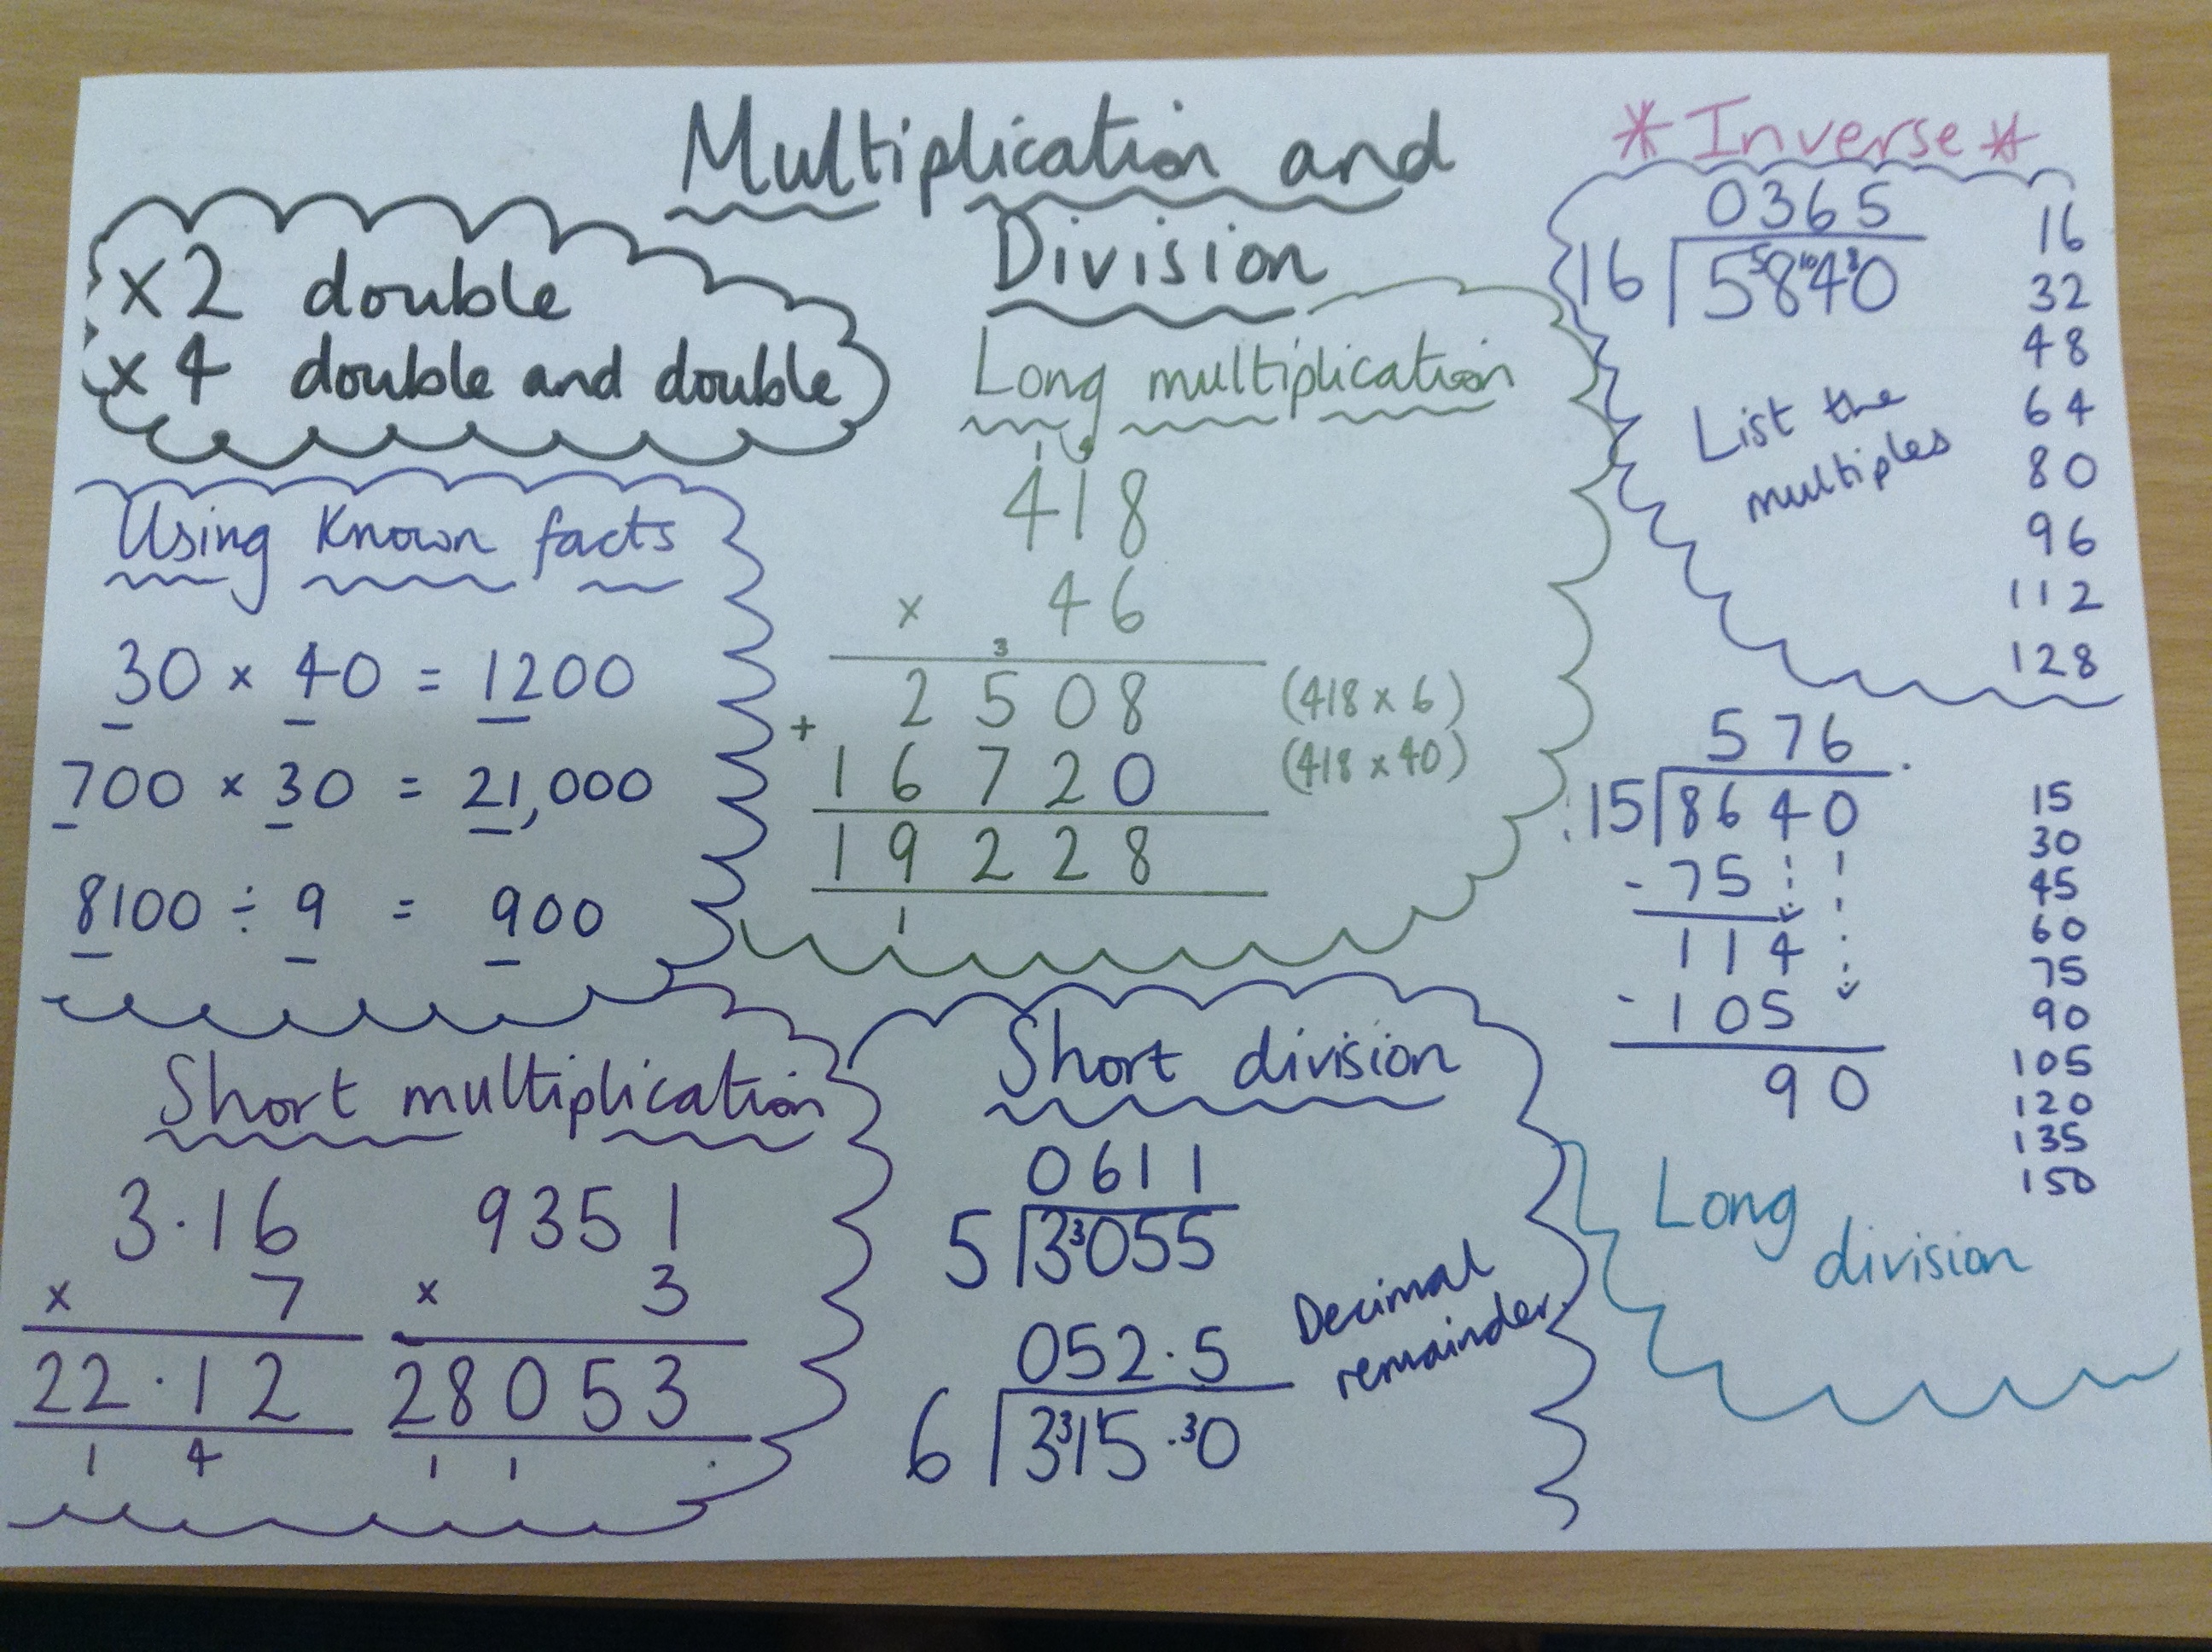 Multiplication and
Division
x2 double
x4 double and double
Using Known facts
30 x 40 = 1200
700 x 30 = 21,000
8100 ÷ 9 = 900
Long multiplication
1 4
418
x 46
3
2508 (418 x 6)
+
16720 (418 x 40)
19228
1
*Inverse*
0365
16 5⁵8¹⁰4⁸0
List the
multiples
16
32
48
64
80
96
112
128
576
15 8640
-75
114
-105
90
15
30
45
60
75
90
105
120
135
150
Long
division
Short multiplication
3.16
x 7
22.12
1 4
9351
x 3
28053
1 1
Short division
0611
5 3³055
052.5
6 3³1¹5.³0
Decimal
remainder